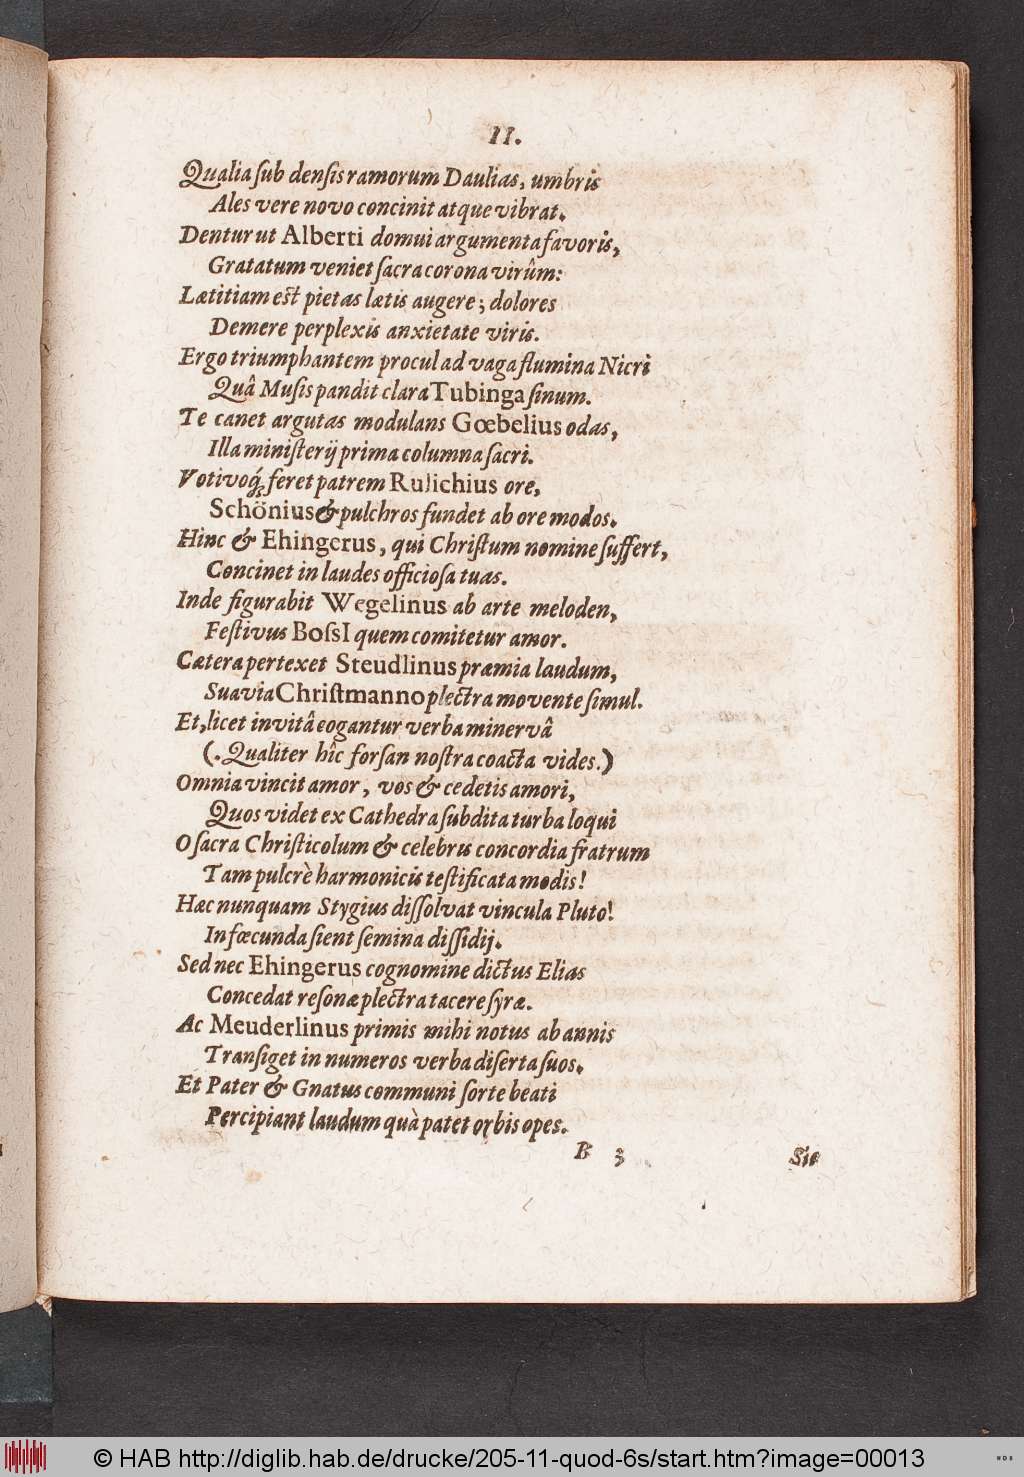 II.
Qualia ſub denſis ramorum Daulias, umbris
Ales vere novo concinit atque vibrat.
Dentur ut Alberti domui argumenta favoris,
Gratatum veniet ſacra corona virûm:
Lætitiam eſt pietas lætis augere; dolores
Demere perplexis anxietate viris.
Ergo triumphantem procul ad vaga flumina Nicri
Quâ Muſis pandit clara Tubinga ſinum.
Te canet argutas modulans Gœbelius odas,
Illa miniſterij prima columna ſacri.
Votivoq́ꝫ feret patrem Rulichius ore,
Schönius & pulchros fundet ab ore modos.
Hinc & Ehingerus, qui Chriſtum nomine ſuffert,
Concinet in laudes officioſa tuas.
Inde figurabit Wegelinus ab arte meloden,
Feſtivus BoſsI quem comitetur amor.
Cætera pertexet Steudlinus præmia laudum,
Suavia Chriſtmanno plectra movente ſimul.
Et, licet invitâ cogantur verba minervâ
(. Qualiter hîc forſan noſtra coacta vides.)
Omnia vincit amor, vos & cedetis amori,
Quos videt ex Cathedra ſubdita turba loqui
O ſacra Chriſticolum & celebris concordia fratrum
Tam pulcrè harmonicis teſtificata modis!
Hac nunquam Stygius diſſolvat vincula Pluto!
Infœcunda ſient ſemina diſſidij.
Sed nec Ehingerus cognomine dictus Elias
Concedat reſonæ plectra tacere ſyræ.
Ac Meuderlinus primis mihi notus ab annis
Tranſiget in numeros verba diſerta ſuos.
Et Pater & Gnatus communi ſorte beati
Percipiant laudum quà patet orbis opes.
B 3 Sic
© HAB http://diglib.hab.de/drucke/205-11-quod-6s/start.htm?image=00013